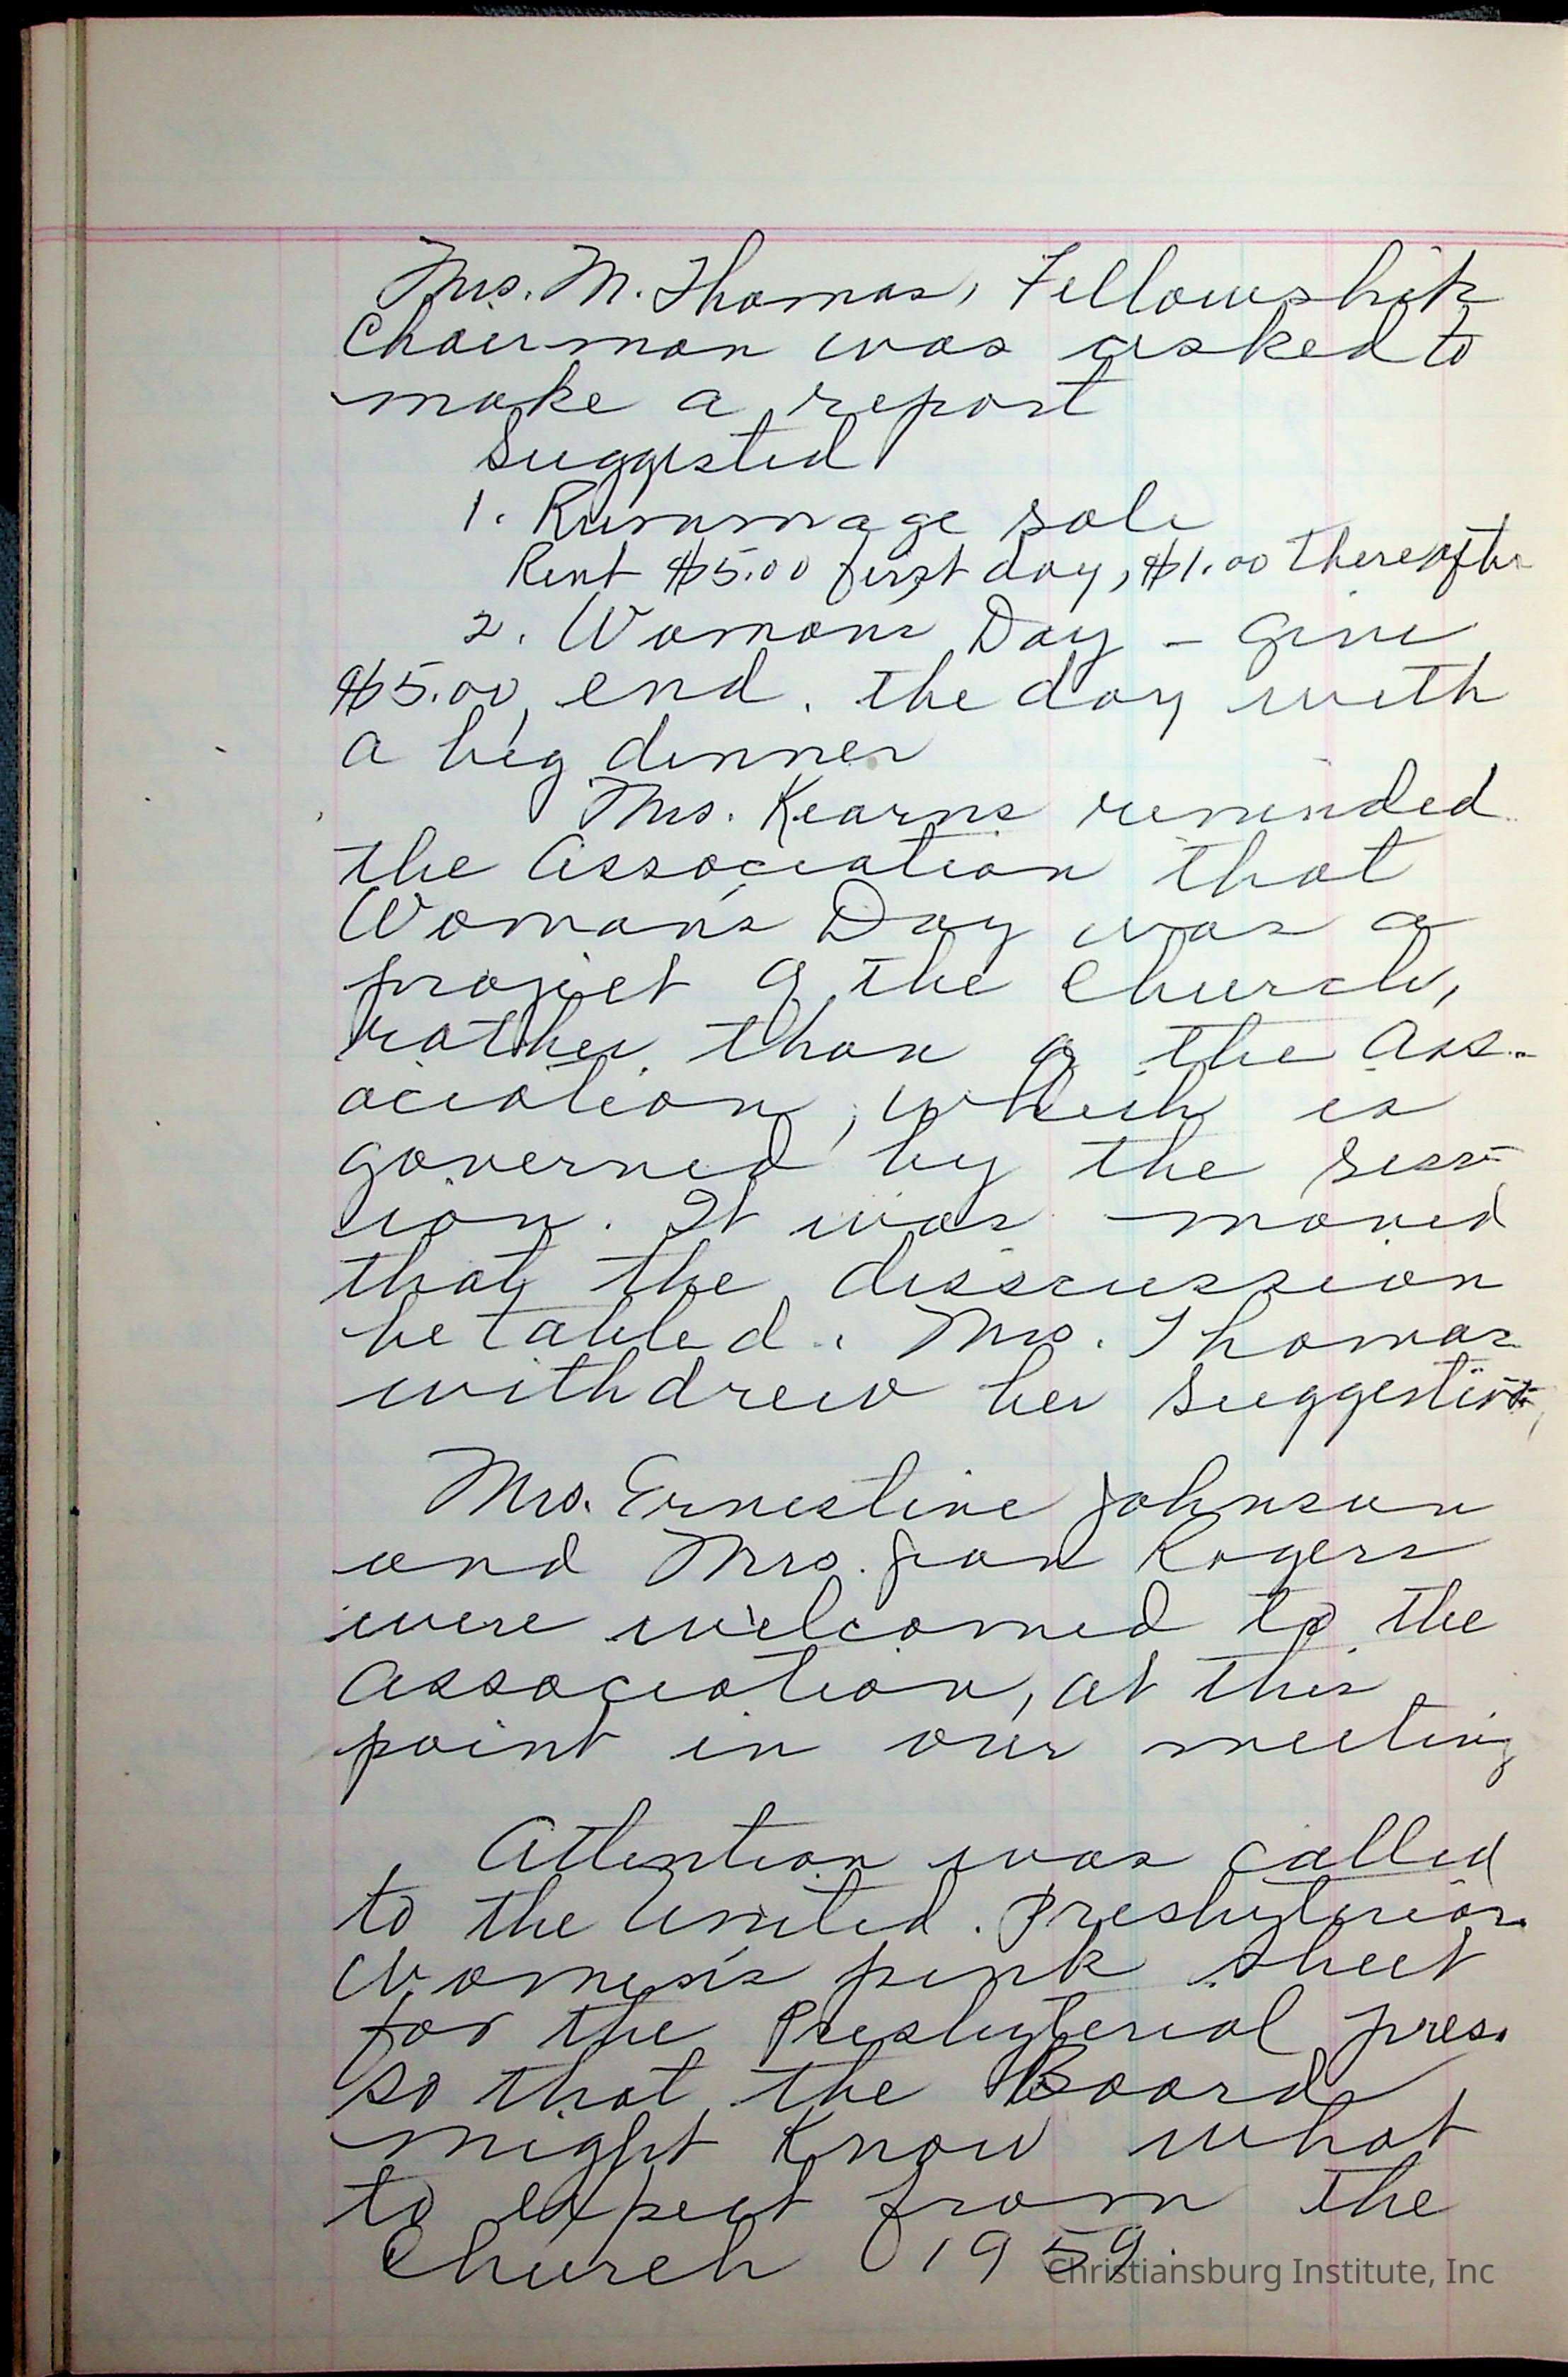 Mrs. M. Thomas, Fellowship
Chairman was asked to
make a report
Suggested
1. Rummage sale
Rent $5.00 first day, $1.00 thereafter
2. Woman's Day - Give
$5.00, end the day with
a big dinner
Mrs. Kearns reminded
the Association that
Woman's Day was a
project of the Church,
rather than of the Ass-
ociation, which is
governed by the sess-
ion. It was moved
that the disscussion
be tabled. Mrs. Thomas
withdrew her suggestion,
Mrs. Ernestine Johnson
and Mrs. Jean Rogers
were welcomed to the
Association, at this
point in our meeting
Attention was called
to the United Presbyterian
Women's pink sheet
for the Presbyterial pres.
so that the Boards
might know what
to expect from the
Church 1959.
Christiansburg Institute, Inc